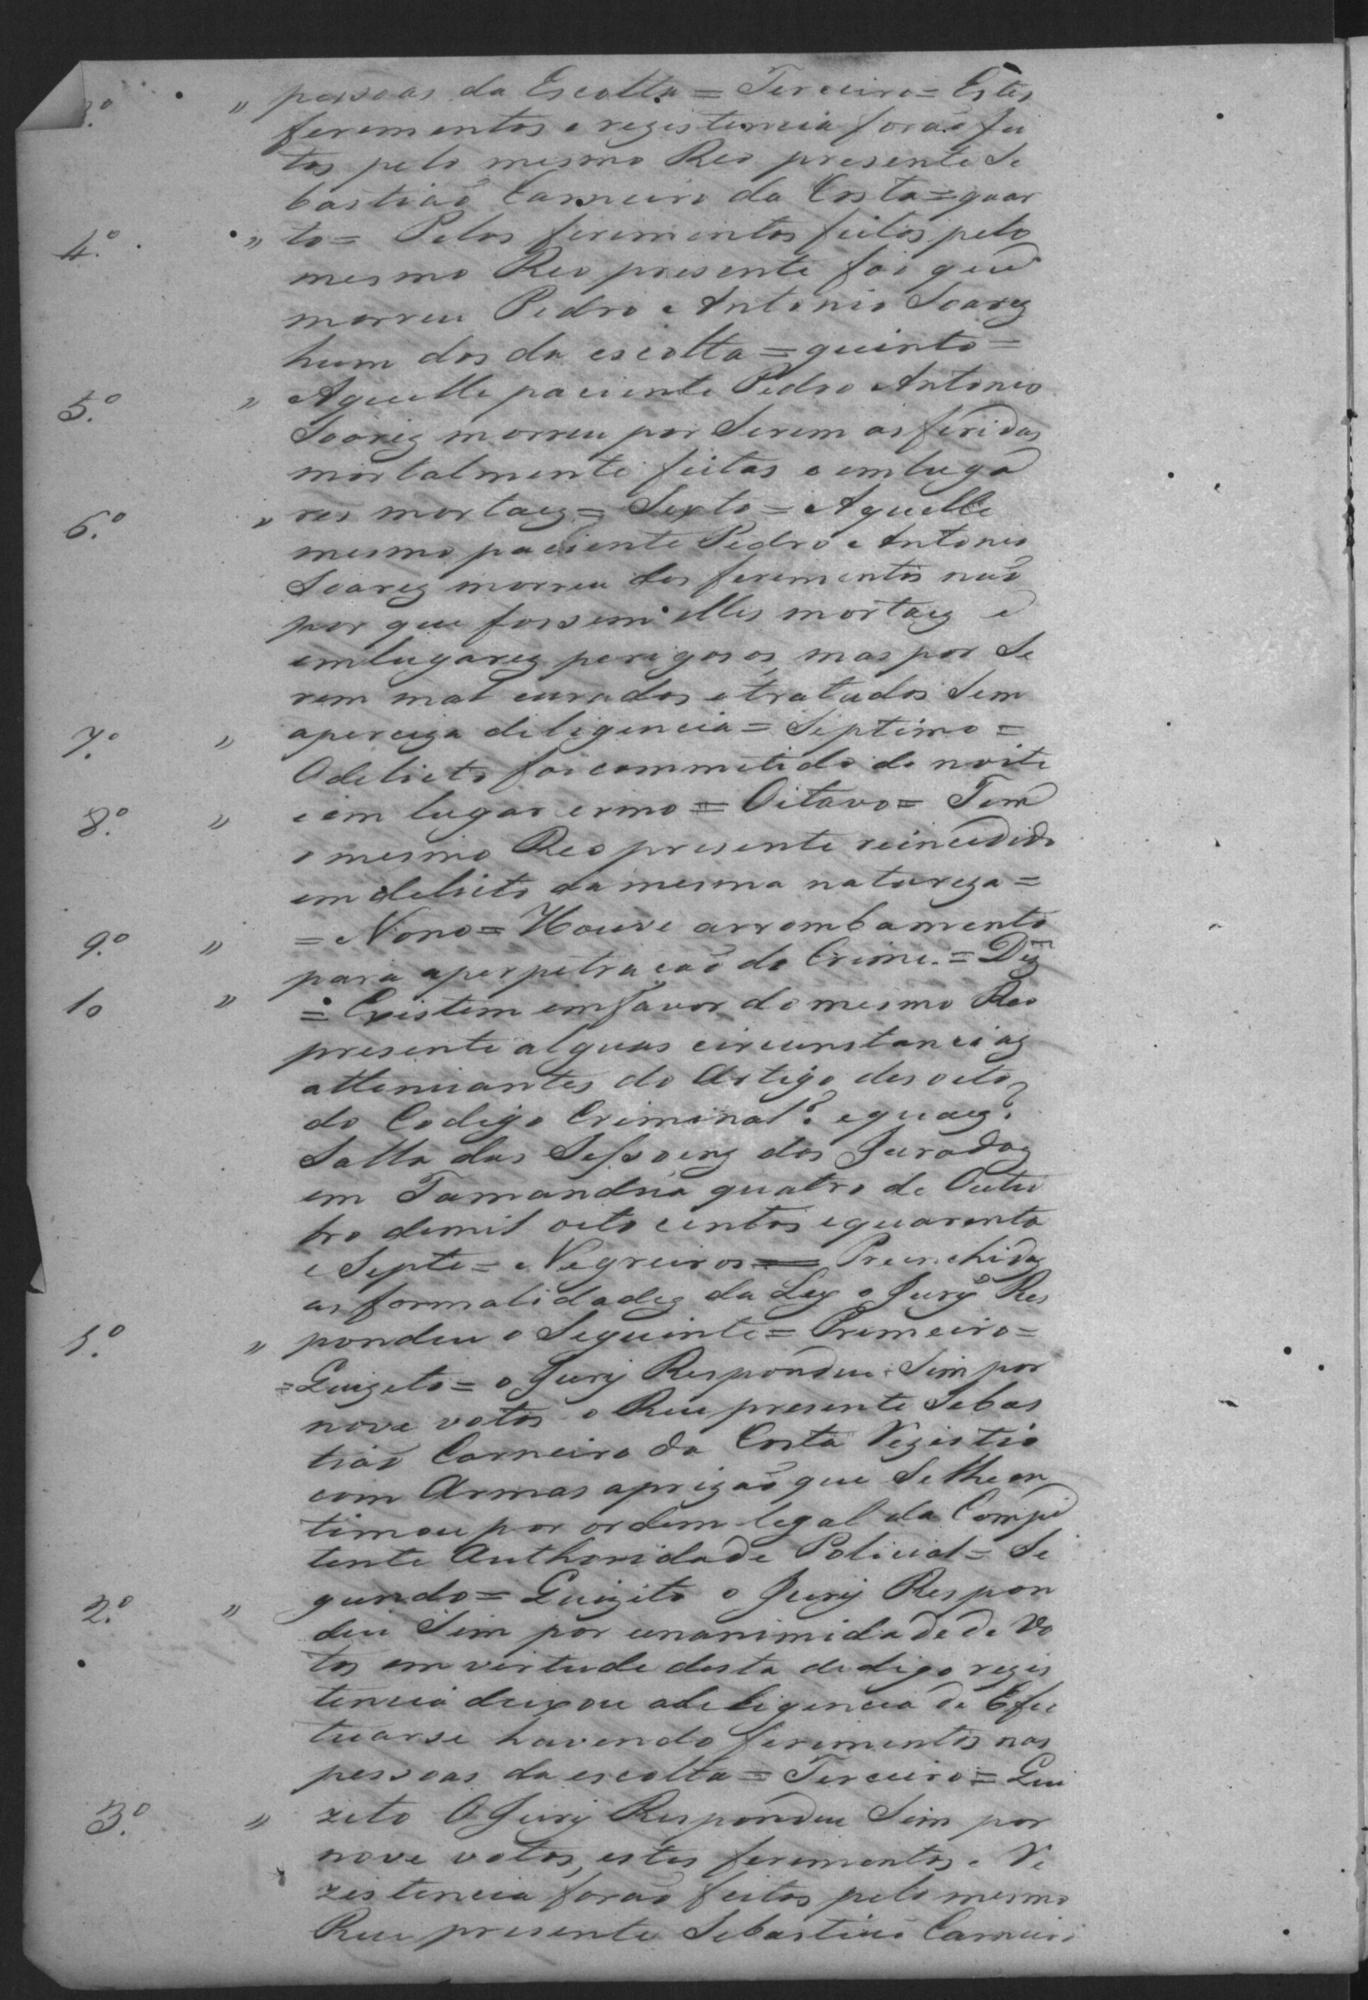 3.º " pessoas da Escolta = Terceiro = Estes
ferimentos e rezistencia forão fei
tos pelo mesmo Reo presente Se
bastião Carneiro da Costa = quar
4.º " to = Pelos ferimentos feitos pelo
mesmo Reo presente foi que
morreu Pedro Antonio Soarez
hum dos da escolta = quinto =
5.º " Aquelle paciente Pedro Antonio
Soarez morreu por Serem as feridas
mortalmente feitas e em luga
6.º " res mortaez = Sexto = Aquelle
mesmo paciente Pedro Antonio
Soarez morreu dos ferimentos não
por que fossem elles mortaez e
em lugarez perigosos, mas por Se
rem mal curados e tratados Sem
7.º " a perciza diligencia = Septimo =
O delicto foi commetido de noite
8.º " e em lugar ermo = Oitavo = Tem
o mesmo Reo presente reincedido
em delicto da mesma natureza =
9.º " = Nono = Houve arrombamento
para a perpetração do Crime. = Dez
10 " = Existem em favor do mesmo Reo
presente alguas circunstanciaz
attenuantes do Artigo desoito
do Codigo Criminal? e quaez?
Salla das Sessoenz dos Juradoz
em Tamanduá quatro de Outu
bro de mil oito centos e quarenta
e Septe = Negreiros = Preenchidaz
as formalidadez da Ley o Jury Res
1.º " pondeu o Seguinte = Primeiro =
= Quizeto = o Jury Respondeu Sim por
nove votos o Reu presente Sebas
tião Carneiro da Costa Rezistio
com Armas a prizão que Se lhe en
timou por ordem legal da Compe
tente Authoridade Policial = Se
2.º " gundo = Quizito o Jury Respon
deu Sim por unanimidade de Vo
tos em virtude desta dedigo rezis
tencia deixou a deligencia de Efei
tuarse havendo ferimentos nas
pessoas da escolta = Terceiro = Qui
3.º " zeto O Jury Respondeu Sim por
nove votos, estes ferimentos e Re
zistencia forão feitos pelo mesmo
Reu presente Sebastião Carneiro